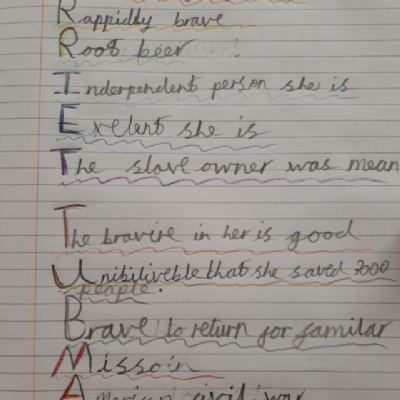 Rappidly brave
Root beer
Independent person she is
Exelent she is
The slave owner was mean
The bravire in her is good
Unibiliveble that she saved 7000
people.
Brave to return for familar
Missoin
Amarican civil war